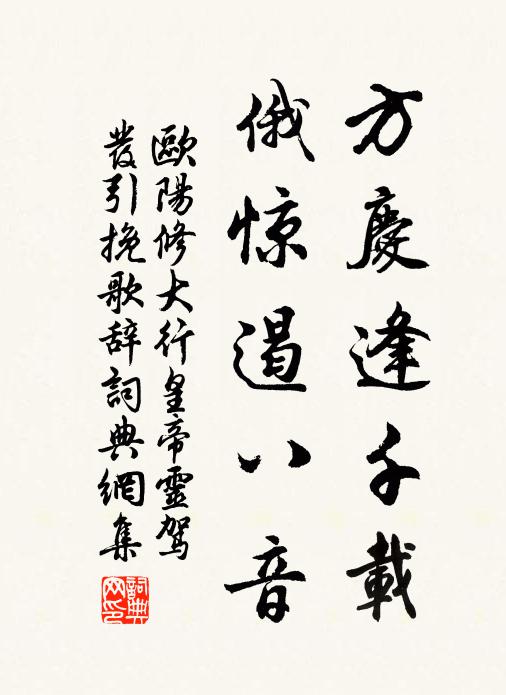 方慶逢千載
俄惊遏八音
歐陽修大行皇帝靈駕
發引挽歌辞詞典網集
詞典网印